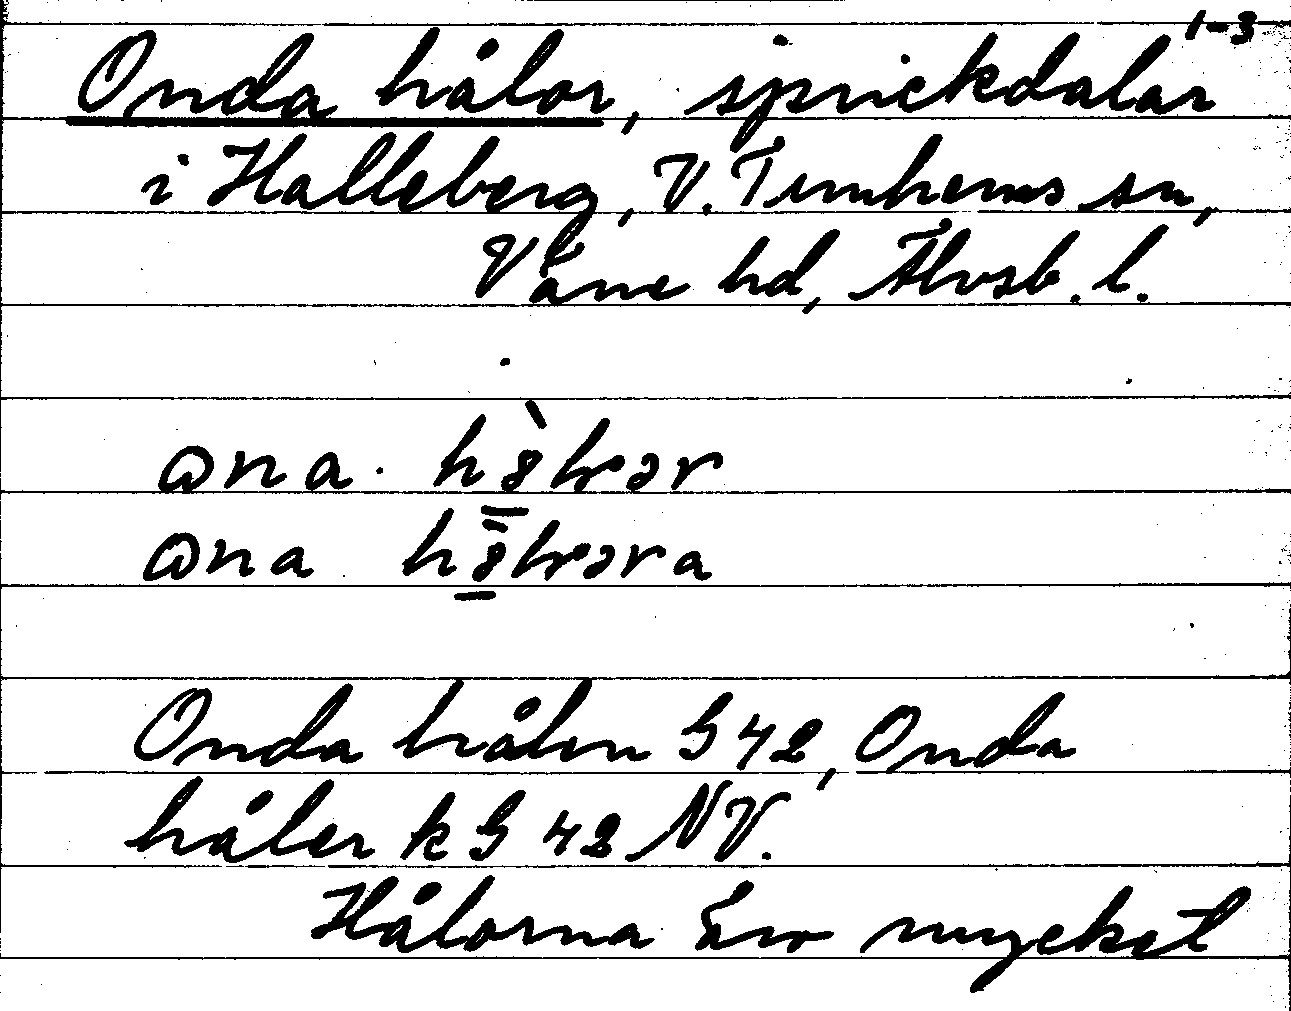 1-3
Onda hålor, sprickdalar
i Halleberg, V. Tunhems sn,
Väne hd, Älvsb. l.
Onda hålon G 42, Onda
håler k G 42 NV.
Hålorna äro mycket